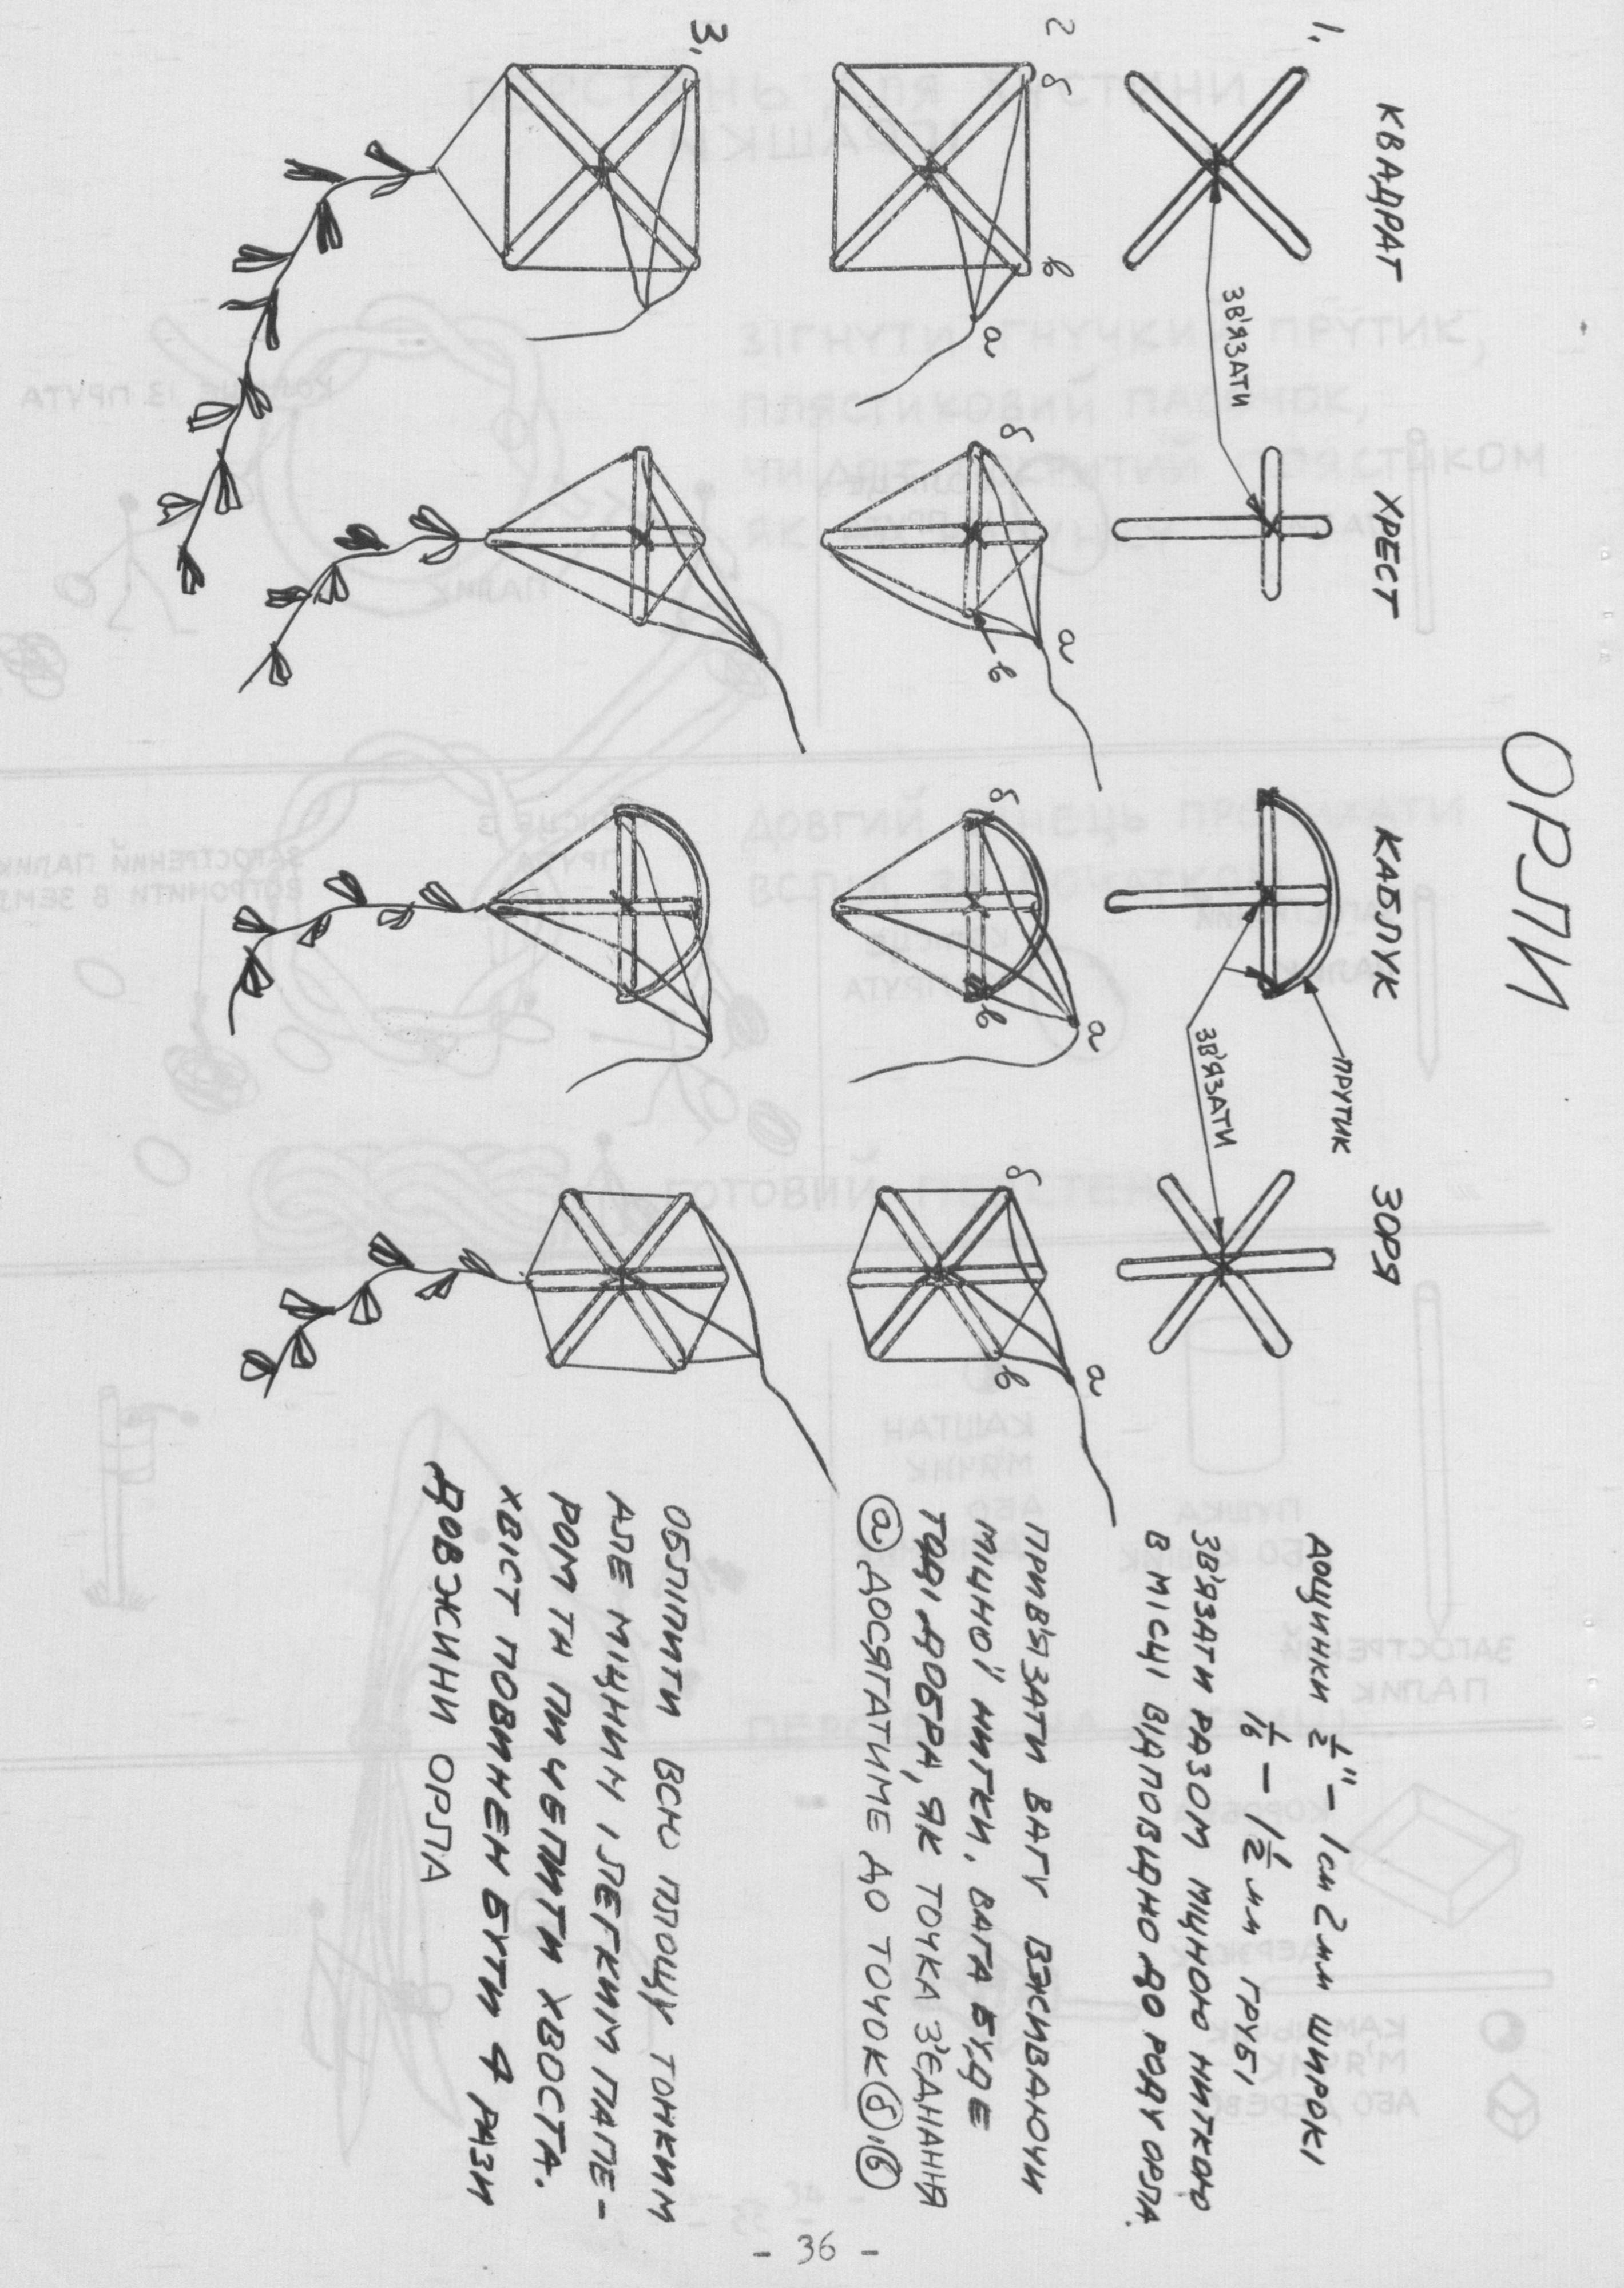 ОРЛИ
КВАДРАТ
ХРЕСТ
КАБЛУК
ЗОРЯ
1.
ЗВ'ЯЗАТИ
ЗВ'ЯЗАТИ
ПРУТИК
ДОЩИНКИ 1/2" – 1 см 2 мм ШИРОКІ
1/16 – 1 1/2 мм ГРУБІ
ЗВ'ЯЗАТИ РАЗОМ МІЦНОЮ НИТКОЮ
В МІСЦІ ВІДПОВІДНО ДО РОДУ ОРЛА.
2
б
в
а
б
в
а
б
в
а
б
в
а
ПРИВ'ЯЗАТИ ВАГУ ВЖИВАЮЧИ
МІЦНОЇ НИТКИ, ВАГА БУДЕ
ТОДІ ДОБРА, ЯК ТОЧКА З'ЄДНАННЯ
а ДОСЯГАТИМЕ ДО ТОЧОК б і в
3.
ОБЛІПИТИ ВСЮ ПЛОЩУ ТОНКИМ
АЛЕ МІЦНИМ І ЛЕГКИМ ПАПЕ-
РОМ ТА ПИЧЕПИТИ ХВОСТА.
ХВІСТ ПОВИНЕН БУТИ 4 РАЗИ
ДОВЖИНИ ОРЛА
- 36 -